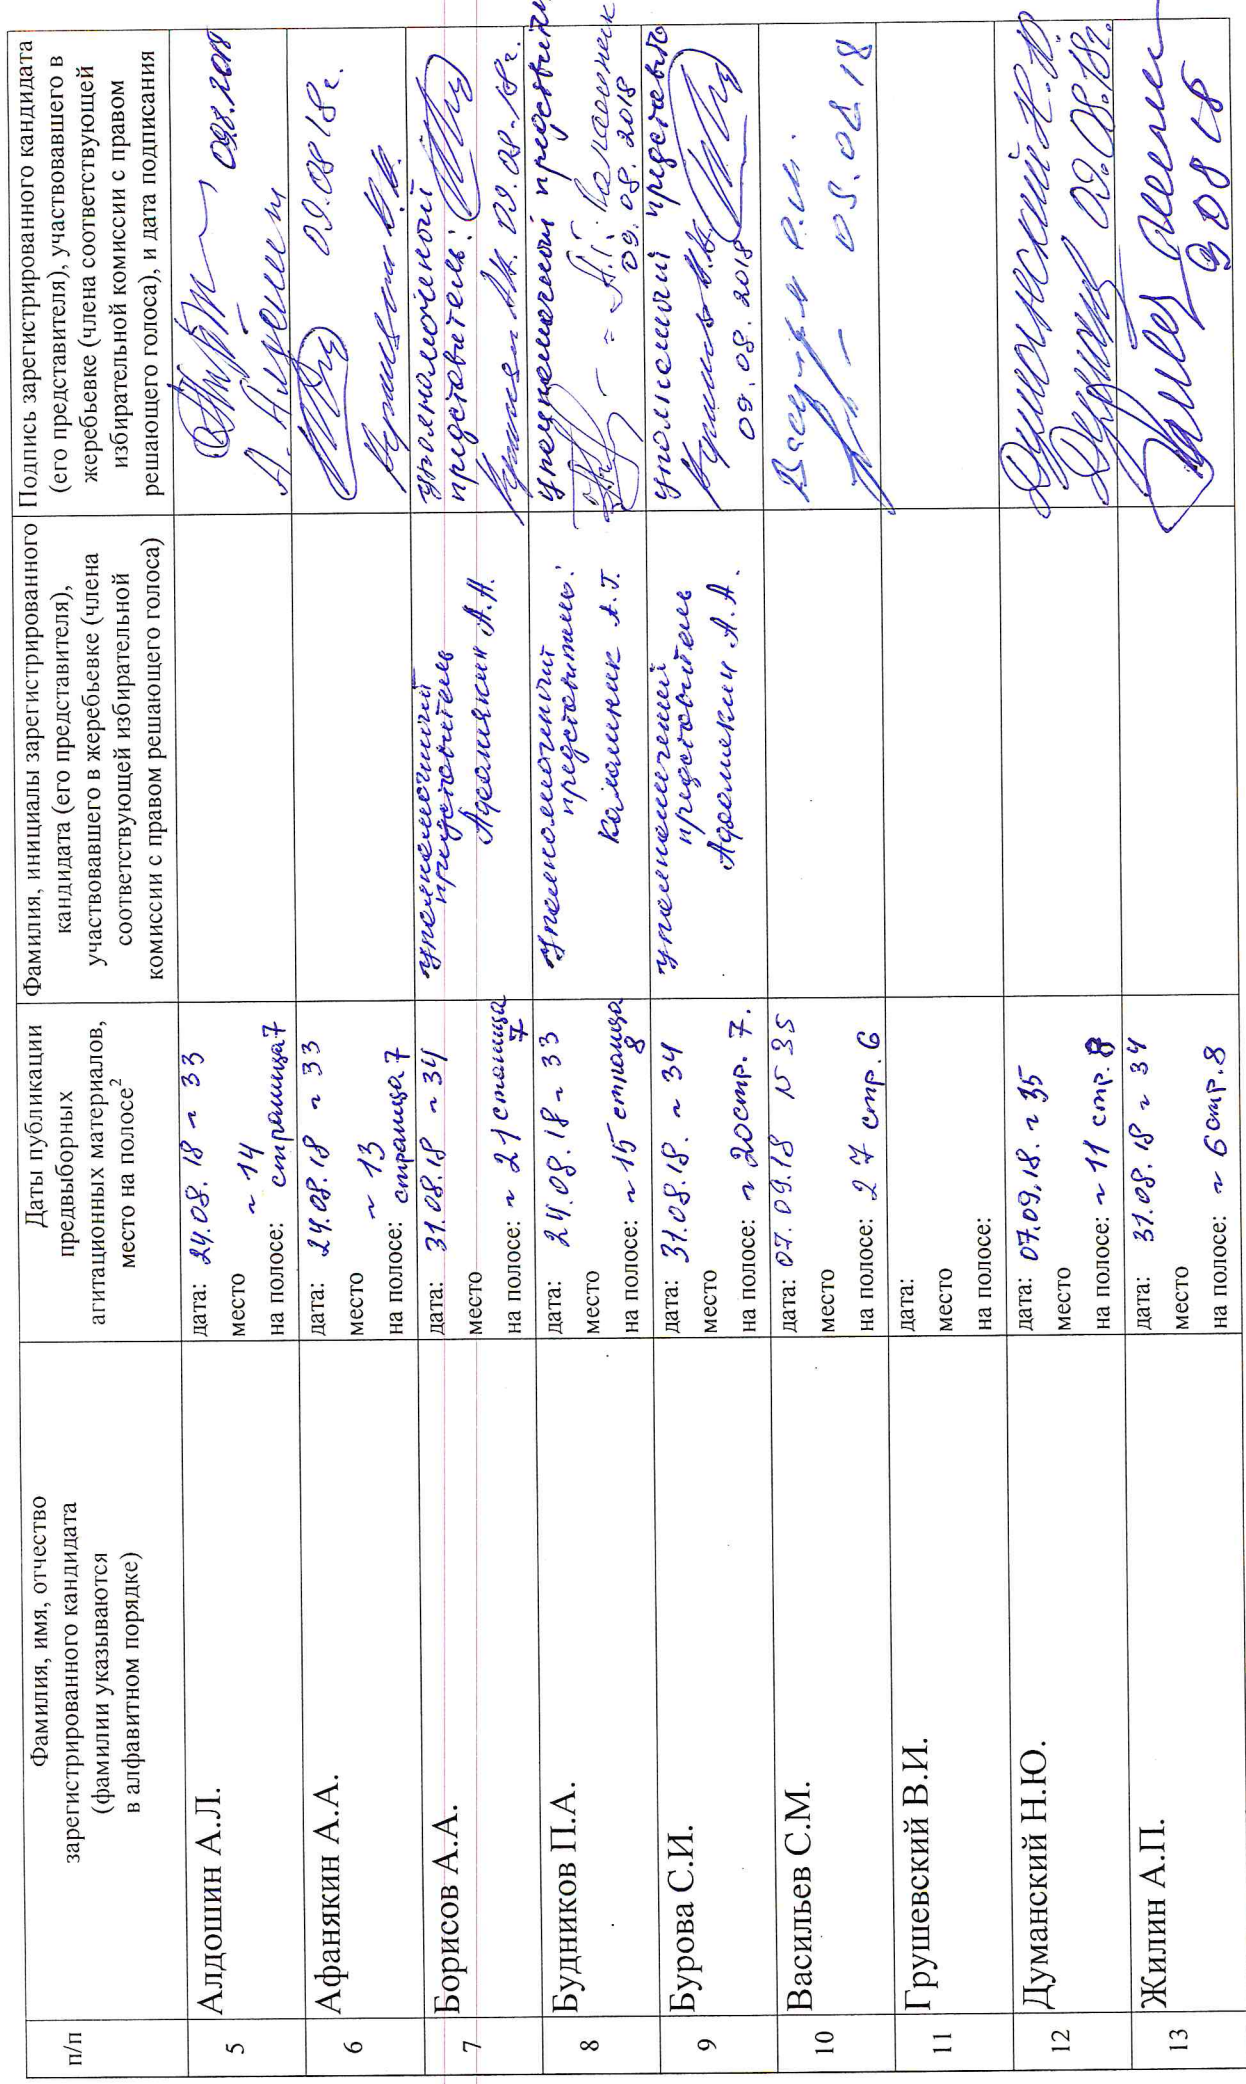 п/п
Фамилия, имя, отчество
зарегистрированного кандидата
(фамилии указываются
в алфавитном порядке)
Даты публикации
предвыборных
агитационных материалов,
место на полосе²
Фамилия, инициалы зарегистрированного
кандидата (его представителя),
участвовавшего в жеребьевке (члена
соответствующей избирательной
комиссии с правом решающего голоса)
Подпись зарегистрированного кандидата
(его представителя), участвовавшего в
жеребьевке (члена соответствующей
избирательной комиссии с правом
решающего голоса), и дата подписания
5
Алдошин А.Л.
дата: 24.08.18 ~ 33
место ~ 14
на полосе: страница 7
09.8.2018
6
Афанякин А.А.
дата: 24.08.18 ~ 33
место ~ 13
на полосе: страница 7
09.08 18г.
7
Борисов А.А.
дата: 31.08.18 ~ 34
место
на полосе: ~ 21 станица
7
уполномочений
представитель
уполномоченой
представитель:
09.08.18г.
8
Будников П.А.
дата: 24.08.18 ~ 33
место
на полосе: ~ 15 страница
8
уполномочений
представитель:
Калашник А.Г.
09.08.2018
9
Бурова С.И.
дата: 31.08.18. ~ 34
место
на полосе: ~ 20 стр. 7.
уполномочений
представитель
09.08.2018
10
Васильев С.М.
дата: 07.09.18 N 35
место
на полосе: 2 7 стр. 6
11
Грушевский В.И.
дата:
место
на полосе:
12
Думанский Н.Ю.
дата: 07.09.18. ~ 35
место
на полосе: ~ 11 стр. 8
Думанский Н.Ю.
09.08.18г.
13
Жилин А.П.
дата: 31.08.18 ~ 34
место
на полосе: ~ 6 стр. 8
9 08 18